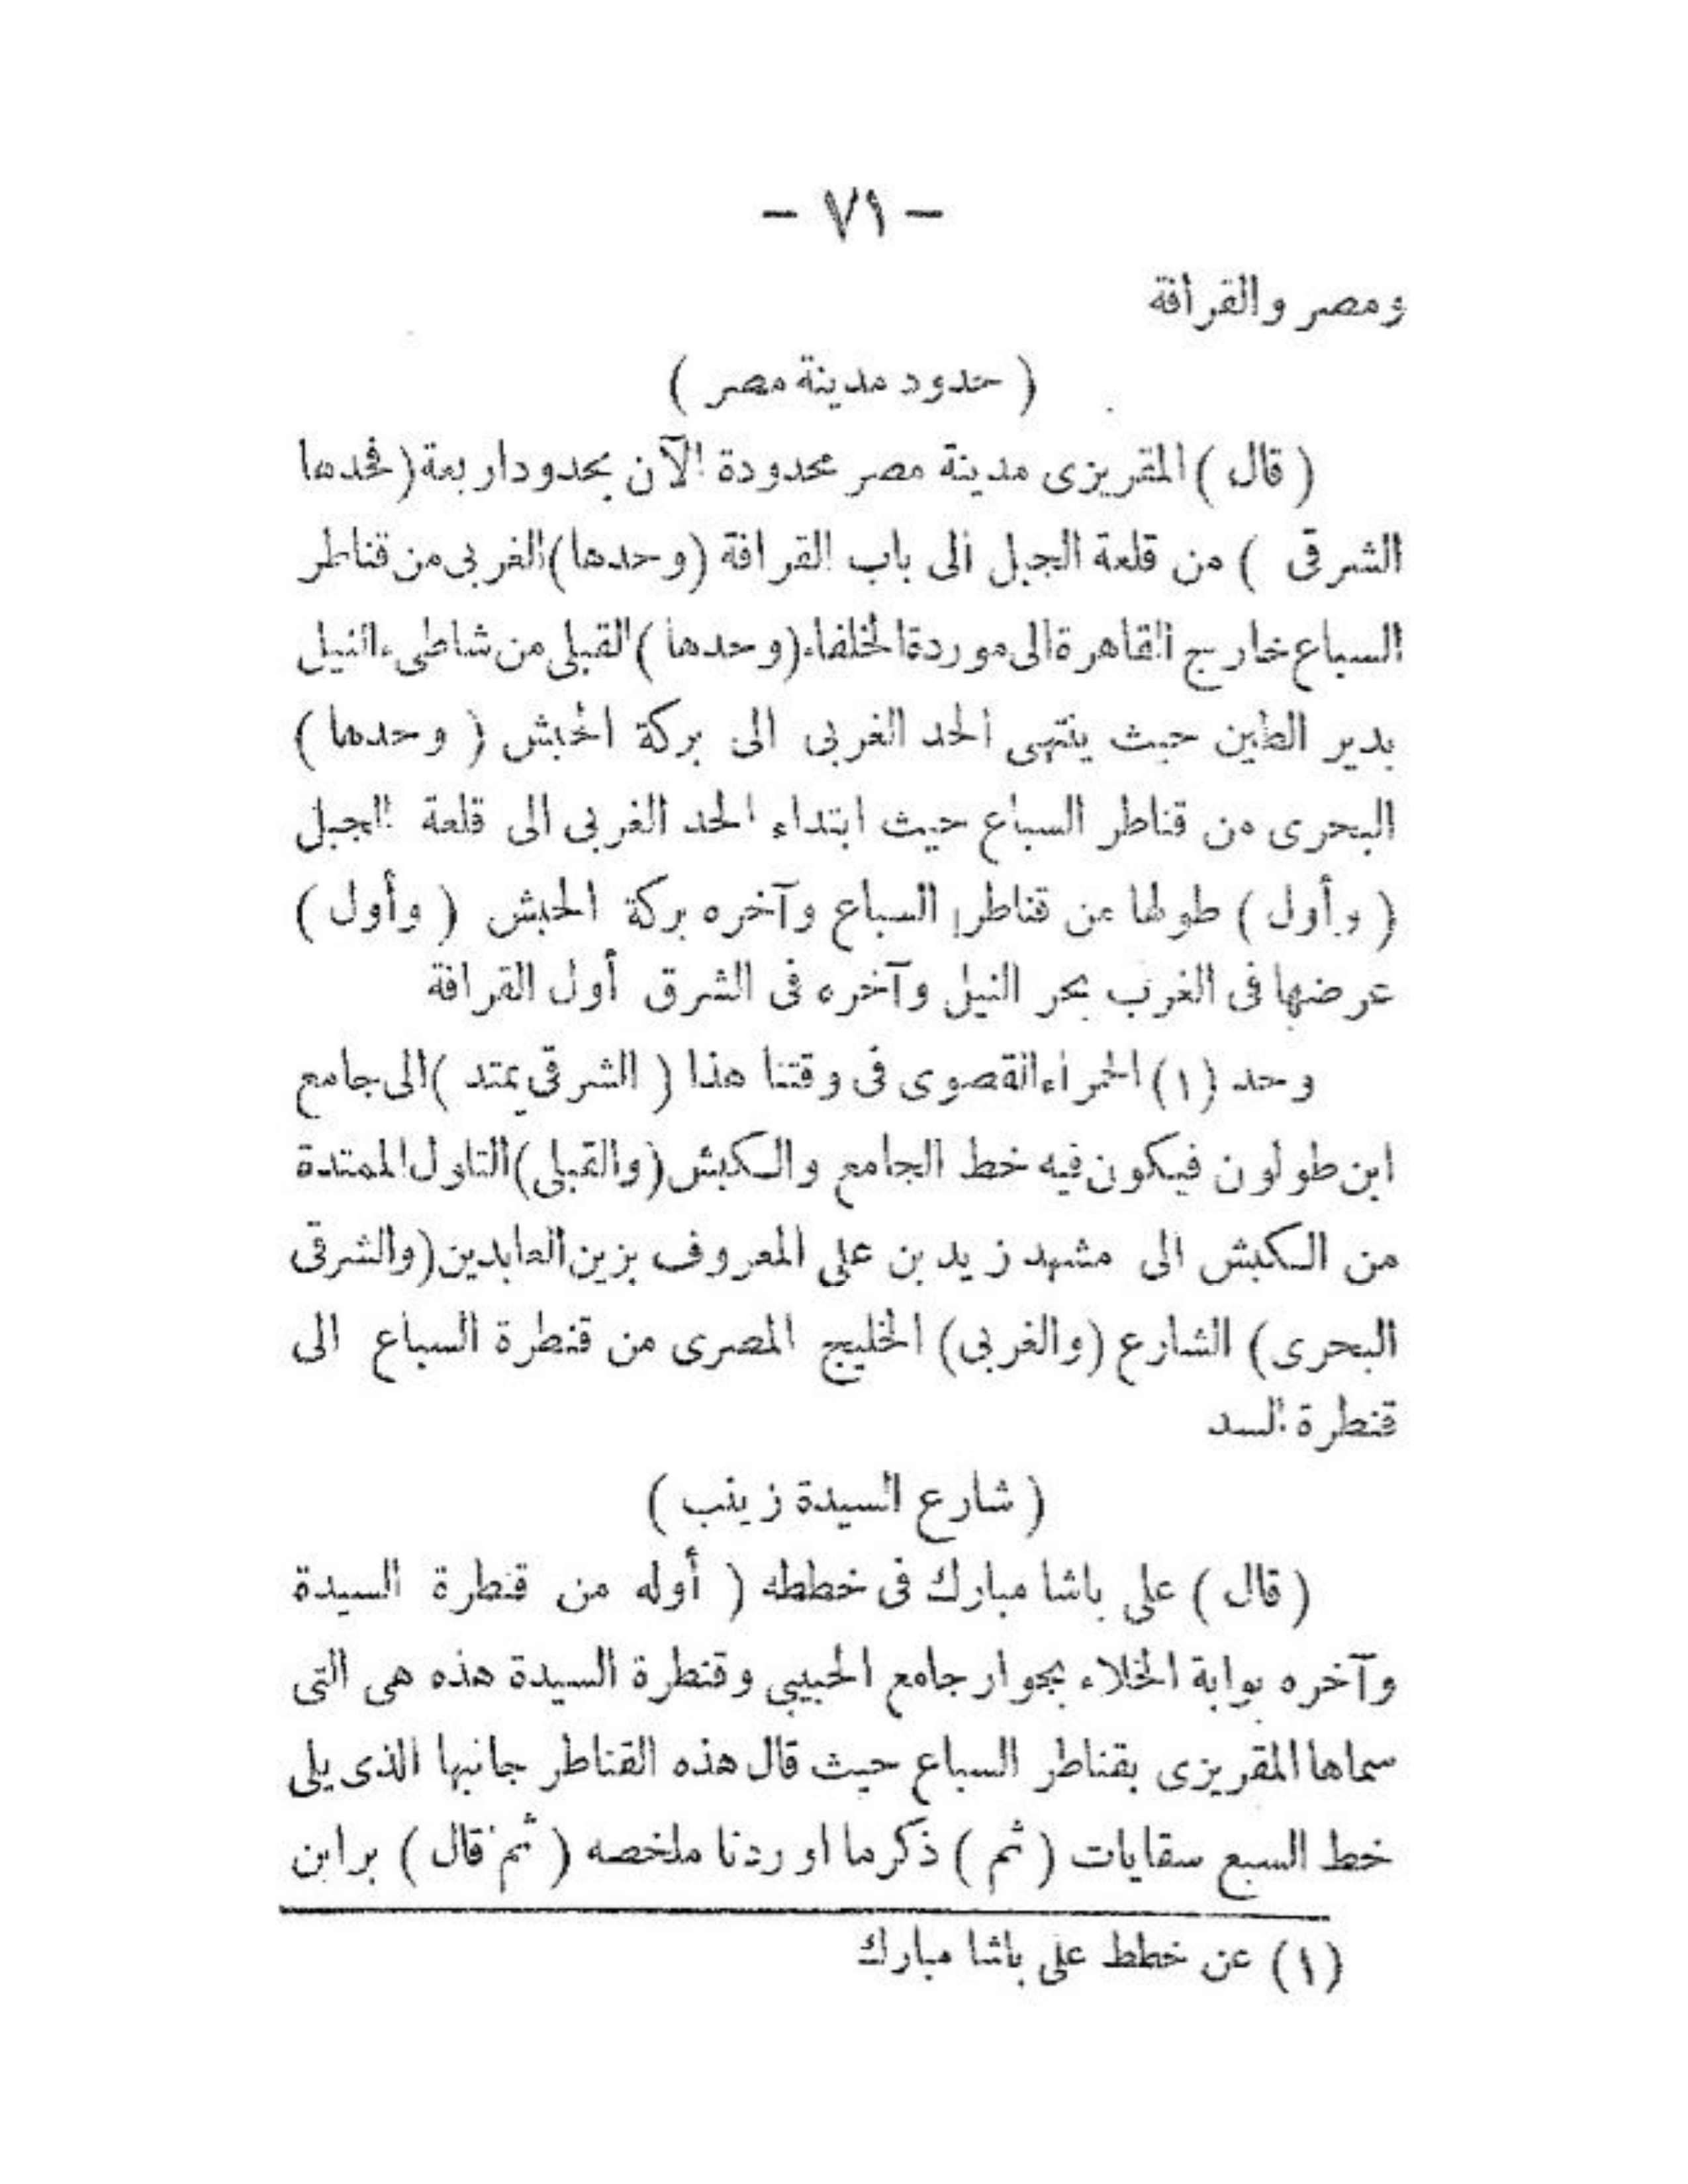 — ٧١ —
ومصر والقرافة
( حدود مدينة مصر )
( قال ) المقريزى مدينة مصر محدودة الآن بحدود اربعة (فحدها
الشرقى ) من قلعة الجبل الى باب القرافة (وحدها) الغربى من قناطر
السباع خارج القاهرة الى موردة الخلفاء (وحدها) القبلى من شاطىء النيل
بدير الطين حيث ينتهى الحد الغربى الى بركة الحبش ( وحدها )
البحرى من قناطر السباع حيث ابتداء الحد الغربى الى قلعة الجبل
( وأول ) طولها من قناطر السباع وآخره بركة الحبش ( وأول )
عرضها فى الغرب بحر النيل وآخره فى الشرق أول القرافة
وحد (١) الحمراء القصوى فى وقتنا هذا ( الشرقى يمتد ) الى جامع
ابن طولون فيكون فيه خط الجامع والكبش (والقبلى) التلول الممتدة
من الكبش الى مشهد زيد بن على المعروف بزين العابدين (والشرقى
البحرى) الشارع (والغربى) الخليج المصرى من قنطرة السباع الى
قنطرة السد
( شارع السيدة زينب )
( قال ) على باشا مبارك فى خططه ( أوله من قنطرة السيدة
وآخره بوابة الخلاء بجوار جامع الحبيبى وقنطرة السيدة هذه هى التى
سماها المقريزى بقناطر السباع حيث قال هذه القناطر جانبها الذى يلى
خط السبع سقايات ( ثم ) ذكر ما اوردنا ملخصه ( ثم قال ) برابن
(١) عن خطط على باشا مبارك